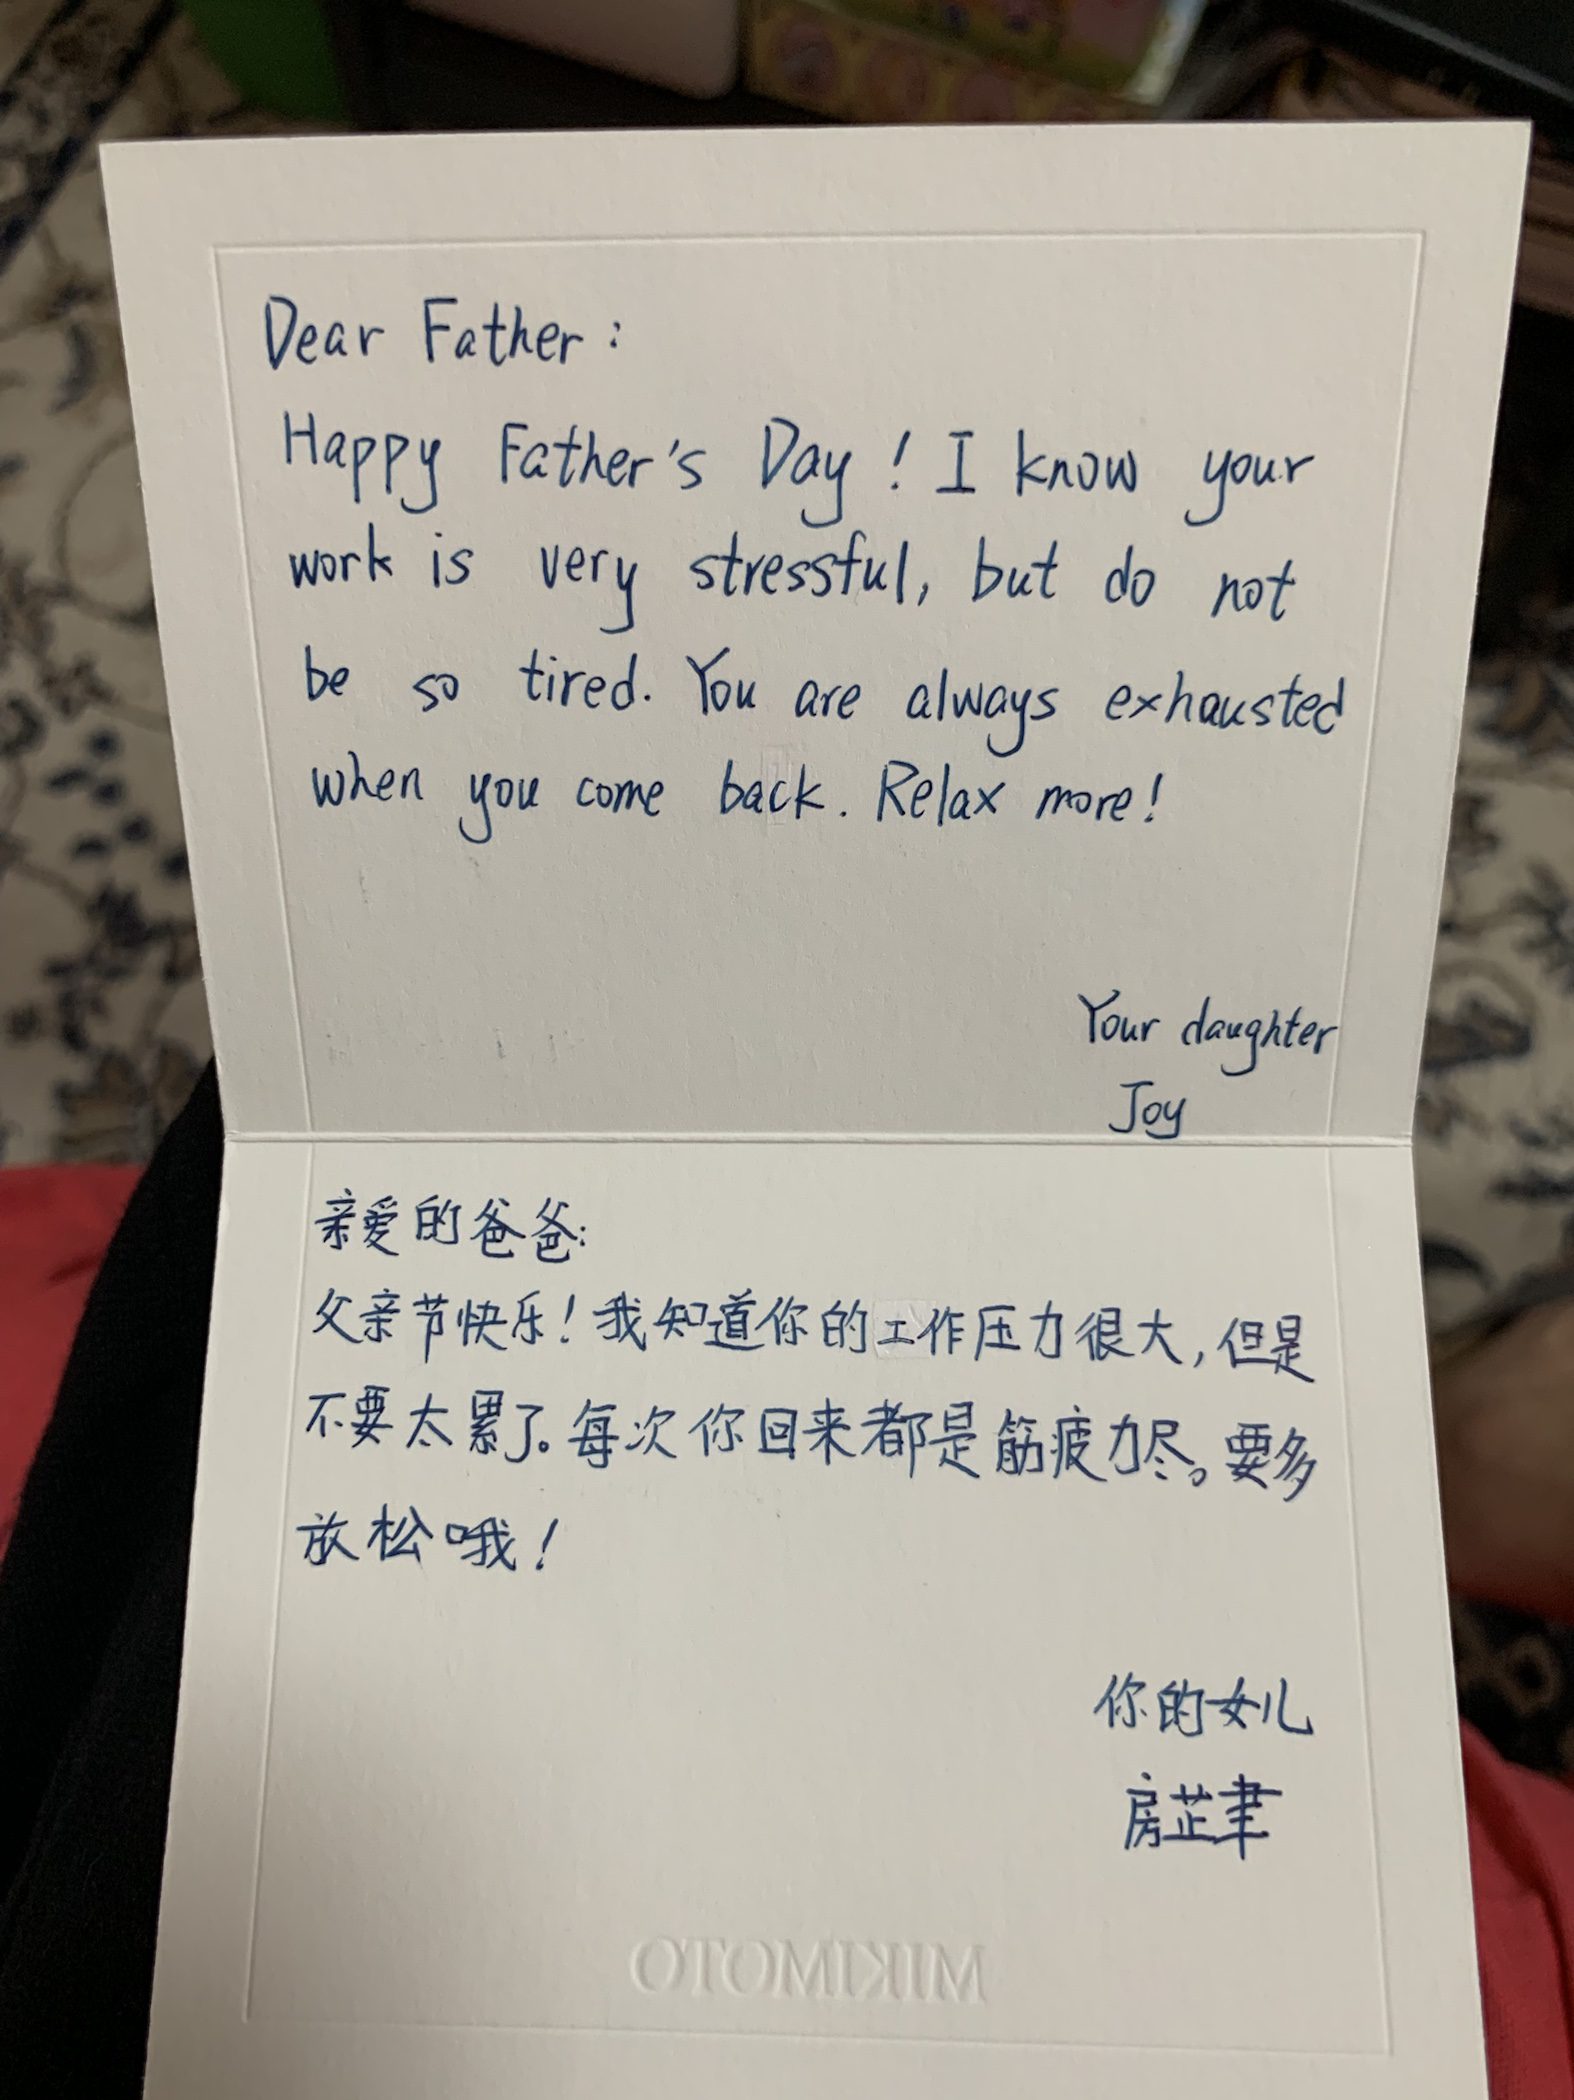 Dear Father:
Happy Father's Day! I know your
work is very stressful, but do not
be so tired. You are always exhausted
when you come back. Relax more!
Your daughter
Joy
亲爱的爸爸:
父亲节快乐!我知道你的工作压力很大,但是
不要太累了。每次你回来都是筋疲力尽。要多
放松哦!
你的女儿
房芷聿
MIKIMOTO